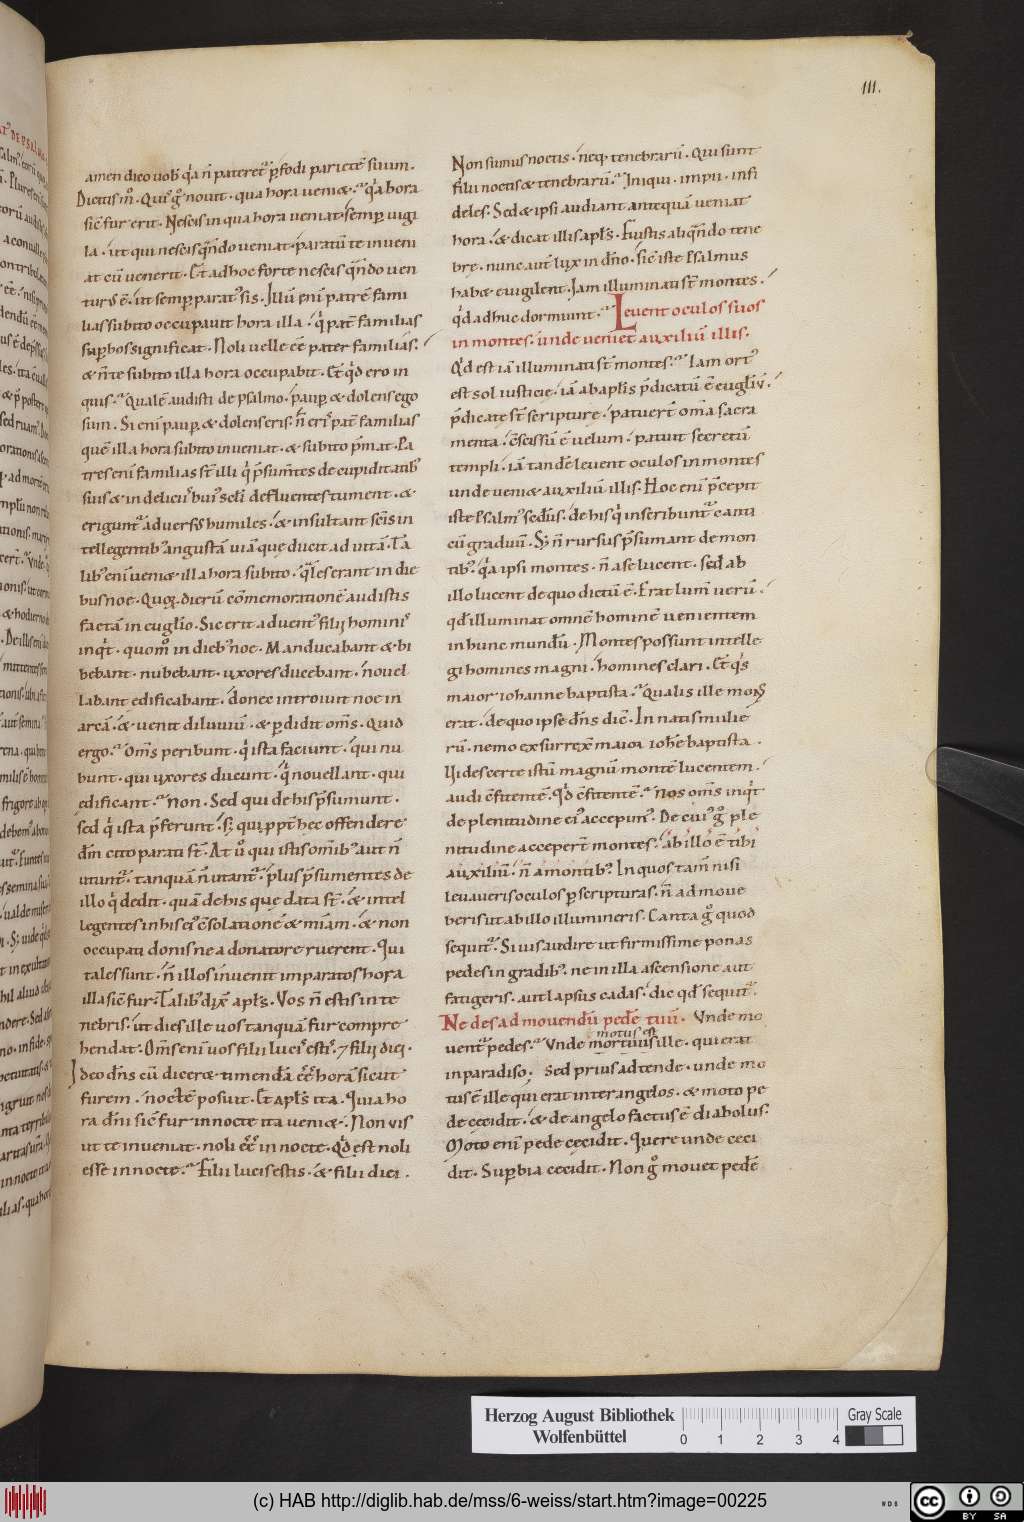 111.
amen dico uob̄ q̓a n̄ pateret᷑ ꝑfodi parietē suum.
Dictus m̄. Quis g̊ nouit. qua hora ueniæ. q̓a hora
sic̄ fur erit. Nescis in qua hora ueniat. semꝑ uigi
la. ut qui nescis qn̄do ueniat. paratū te inueni
at cū uenerit. Et̄ ad hoc forte nescis qn̄do uen
turꝰ ē. ut semꝑ paratꝰ sis. Illū eni patrē fami
lias subito occupauit hora illa. q̓ pat̄ familias
suꝑbos significat. Noli uelle eē pater familias.
& n̄ te subito illa hora occupabit. Et̄ q̓d ero in
quis. Qualē audisti de psalmo. pauꝑ & dolens ego
sum. Si eni pauꝑ & dolens eris. n̄ eris pat̄ familias
quē illa hora subito inueniat. & subito p̄mat. Pa
tres eni familias st̄ illi q̓ p̄sumtes de cupiditatibꝰ
suis & in delicijs huiꝰ scl̄i defluentes tument. &
erigunt᷑ aduersꝰ humiles. & insultant scīs in
tellegentibꝰ angustā uiā quę ducit ad uitā. Ta
libꝰ eni ueniæ illa hora subito. q̓les erant in die
bus noe. Quoꝝ dierū cōmemorationē audistis
factā in euglio. Sic erit aduentꝰ filij hominis
inq̓t. quom̊ in diebꝰ noe. Manducabant & bi
bebant. nubebant. uxores ducebant. nouel
labant edificabant. donec introiuit noe in
arcā. & uenit diluuiū. & ꝑdidit om̄s. Quid
ergo. Om̄s peribunt. q̓ ista faciunt. qui nu
bunt. qui uxores ducunt. q̓ nouellant. qui
edificant. Non. Sed qui de his p̄sumunt.
sed q̓ ista p̄ferunt. sꝫ qui ꝓpt̄ hęc offendere
dm̄ cito parati st̄. At ů qui istis omībꝰ aut n̄
utunt᷑. tanquā n̄ utant᷑. plus p̄sumentes de
illo q̓ dedit. quā de his quę data st̄. & intel
legentes in his eiꝰ c̄solationē & miām. & non
occupati donis ne a donatore ruerent. Qui
tales sunt. n̄ illos inuenit imparatos hora
illa sic̄ fur. Talibꝰ dix̄ apl̄s. Vos n̄ estis in te
nebris. ut dies ille uos tanquā fur compre
hendat. Om̄s eni uos filii lucis estis. ⁊ filij diei.
Ideo dn̄s eū diceræ timendā eē horā sicut
furem. noctē posuit. Et̄ apl̄s ita. Quia ho
ra dn̄i sic̄ fur in nocte ita ueniæ. Non uis
ut te inueniat. noli eē in nocte. Q̓d est noli
esse in nocte. Filii lucis estis. & filii diei.
Non sumus noctis. neq; tenebrarū. Qui sunt
filii noctis & tenebrarū. Iniqui. impii. infi
deles. Sed & ipsi audiant antequā ueniat
hora. & dicat illis apl̄s. Fuistis aliqn̄do tene
bre. nunc aut̄ lux in dn̄o. sic̄ iste Psalmus
habæ euigilent. Iam illuminati st̄ montes.
q̓d adhuc dormiunt. Leuent oculos suos
in montes. unde ueniet auxiliū illis.
Q̓d est iā illuminati st̄ montes. Iam ortꝰ
est sol iusticię. iā ab aplīs p̄dicatū ē euglīv̄.
p̄dicatę st̄ scripturę. patuer̄t om̄a sacra
menta. c̄scissū ē uelum. patuit secretū
templi. iā tandē leuent oculos in montes
unde ueniæ auxiliū illis. Hoc eni p̄cepit
iste Psalmꝰ sedūs. de his q̓ inscribunt᷑ canti
cū graduū. Sꝫ n̄ rursus p̄sumant de mon
tibꝰ. q̓a ipsi montes. n̄ a se lucent. sed ab
illo lucent de quo dictū ē. Erat lum̄ uerū.
qd̄ illuminat omnē hominē uenientem
in hunc mundū. Montes possunt intelle
gi homines magni. homines clari. Et̄ q̓s
maior iohanne baptista. Qualis ille mons
erat. de quo ipse dn̄s dic̄. In natis mulie
rū. nemo exsurrex̄ maior iohē baptista.
Uides certe istū magnū montē lucentem.
audi c̄fitentē. Q̓d c̄fitentē. Nos om̄s inq̓t
de plenitudine eiꝰ accepimꝰ. De cuiꝰ g̊ ple
nitudine acceper̄t montes. ab illo ē tibi
auxiliū. n̄ a montibꝰ. In quos tam̄ nisi
leuaueris oculos ꝑ scripturas. n̄ admoue
beris ut ab illo illumineris. Canta g̊ quod
sequit᷑. Si uis audire ut firmissime ponas
pedes in gradibꝰ. ne in illa ascensione aut
fatigeris. aut lapsus cadas. dic qd̄ sequit᷑.
Ne des ad mouendū pedē tuū. Vnde mo
uent᷑ pedes. Vnde mortuus ille. qui erat
motus est
in paradiso. Sed prius adtende. unde mo
tus ē ille qui erat inter angelos. & moto pe
de cecidit. & de angelo factus ē diabolus.
Moto eni pede cecidit. Quere unde ceci
dit. Suꝑbia cecidit. Non g̊ mouet pedē
Herzog August Bibliothek
Wolfenbüttel
0 1 2 3 4
Gray Scale
(c) HAB http://diglib.hab.de/mss/6-weiss/start.htm?image=00225
cc BY SA